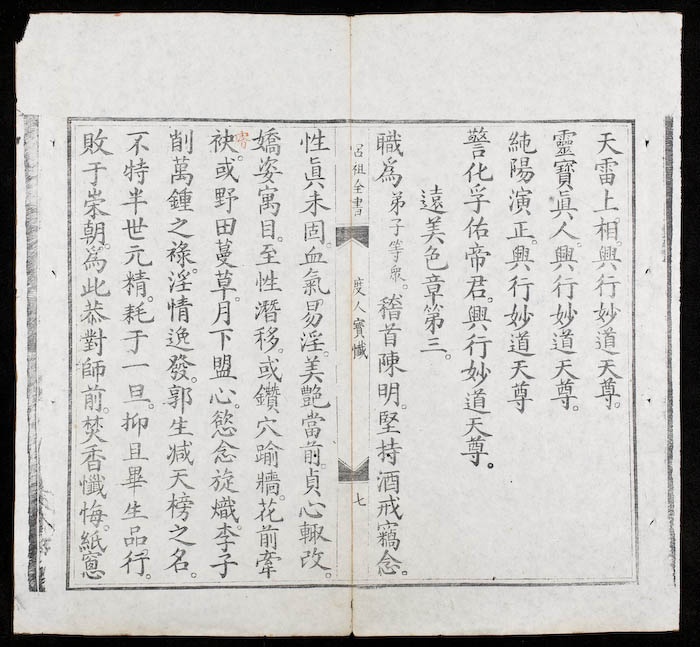 天雷上相。興行妙道天尊。
靈寶眞人。興行妙道天尊。
純陽演正。興行妙道天尊
警化孚佑帝君。興行妙道天尊。
遠美色章第三。
職爲弟子等衆。稽首陳明。堅持酒戒。竊念。
呂祖全書
度人寶懺
七
性眞未固。血氣易淫。美艷當前。貞心輙改。
嬌姿寓目。至性潛移。或鑽穴踰牆。花前牽
袂。或野田蔓草。月下盟心。慾念旋熾。李子
削萬鍾之祿。淫情逸發。郭生減天榜之名。
不特半世元精。耗于一旦。抑且畢生品行。
敗于崇朝。爲此恭對師前。焚香懺悔。紙窻